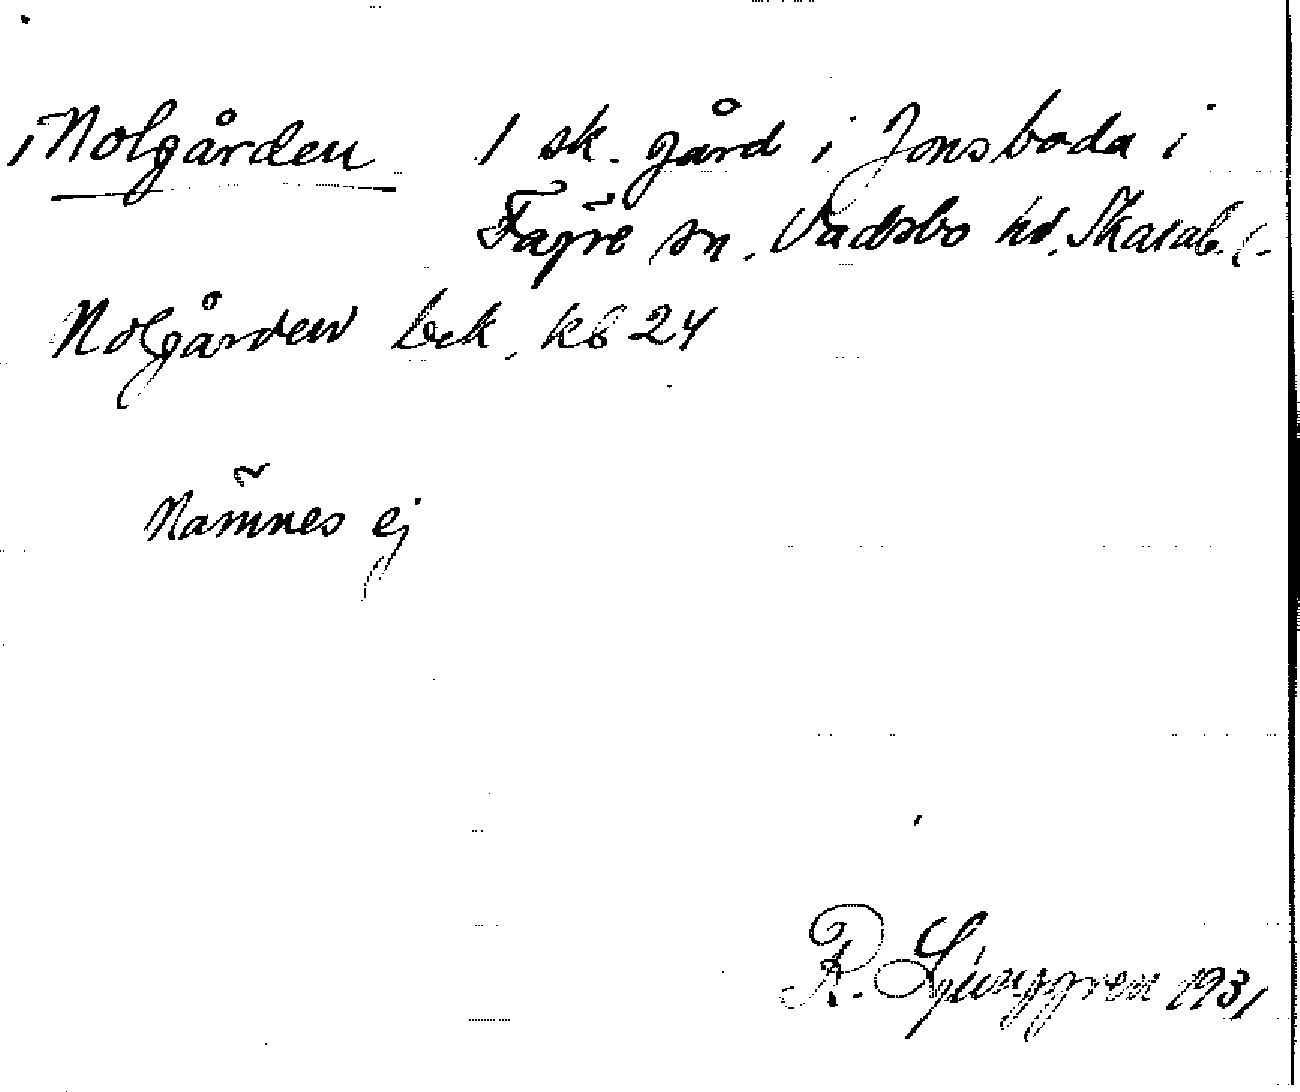 Nolgården 1 sk. gård i Jonsboda i
Fägre sn. Vadsbo hd. Skarab. l.
Nolgården bek. kb 24
Nämnes ej
R. Ljunggren 1931